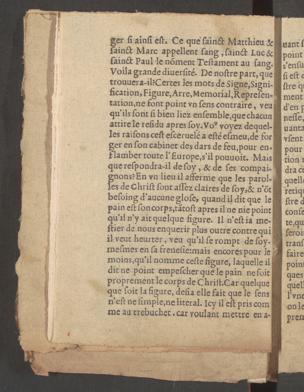 ger si ainsi est. Ce que sainct Matthieu &
sainct Marc appellent sang, sainct Luc &
sainct Paul le nõment Testament au sang.
Voila grande diuersité. De nostre part, que
trouuera-il? Certes les mots de Signe, Signi-
fication, Figure, Arre, Memorial, Represen-
tation, ne font point vn sens contraire, veu
qu'ils sont si bien liez ensemble, que chacun
attire le residu apres soy. Vo⁹ voyez dequel-
les raisons cest esceruelé a esté esmeu, de for
ger en son cabinet des dars de feu, pour en-
flamber toute l'Europe, s'il pouuoit. Mais
que respondra-il de soy, & de ses compai-
gnons? En vn lieu il afferme que les parol-
les de Christ sont assez claires de soy, & n'õt
besoing d'aucune glose, quand il dit que le
pain est son corps, tãtost apres il ne nie point
qu'il n'y ait quelque figure. Il n'est ia me-
stier de nous enquerir plus outre contre qui
il veut heurter, veu qu'il se rompt de soy-
mesmes en sa frenesie: mais encores pour le
moins, qu'il nomme ceste figure, laquelle il
dit ne point empescher que le pain ne soit
proprement le corps de Christ. Car quelque
que soit la figure, desia elle fait que le sens
n'est ne simple, ne literal. Icy il est pris com
me au trebuchet. car voulant mettre en a-